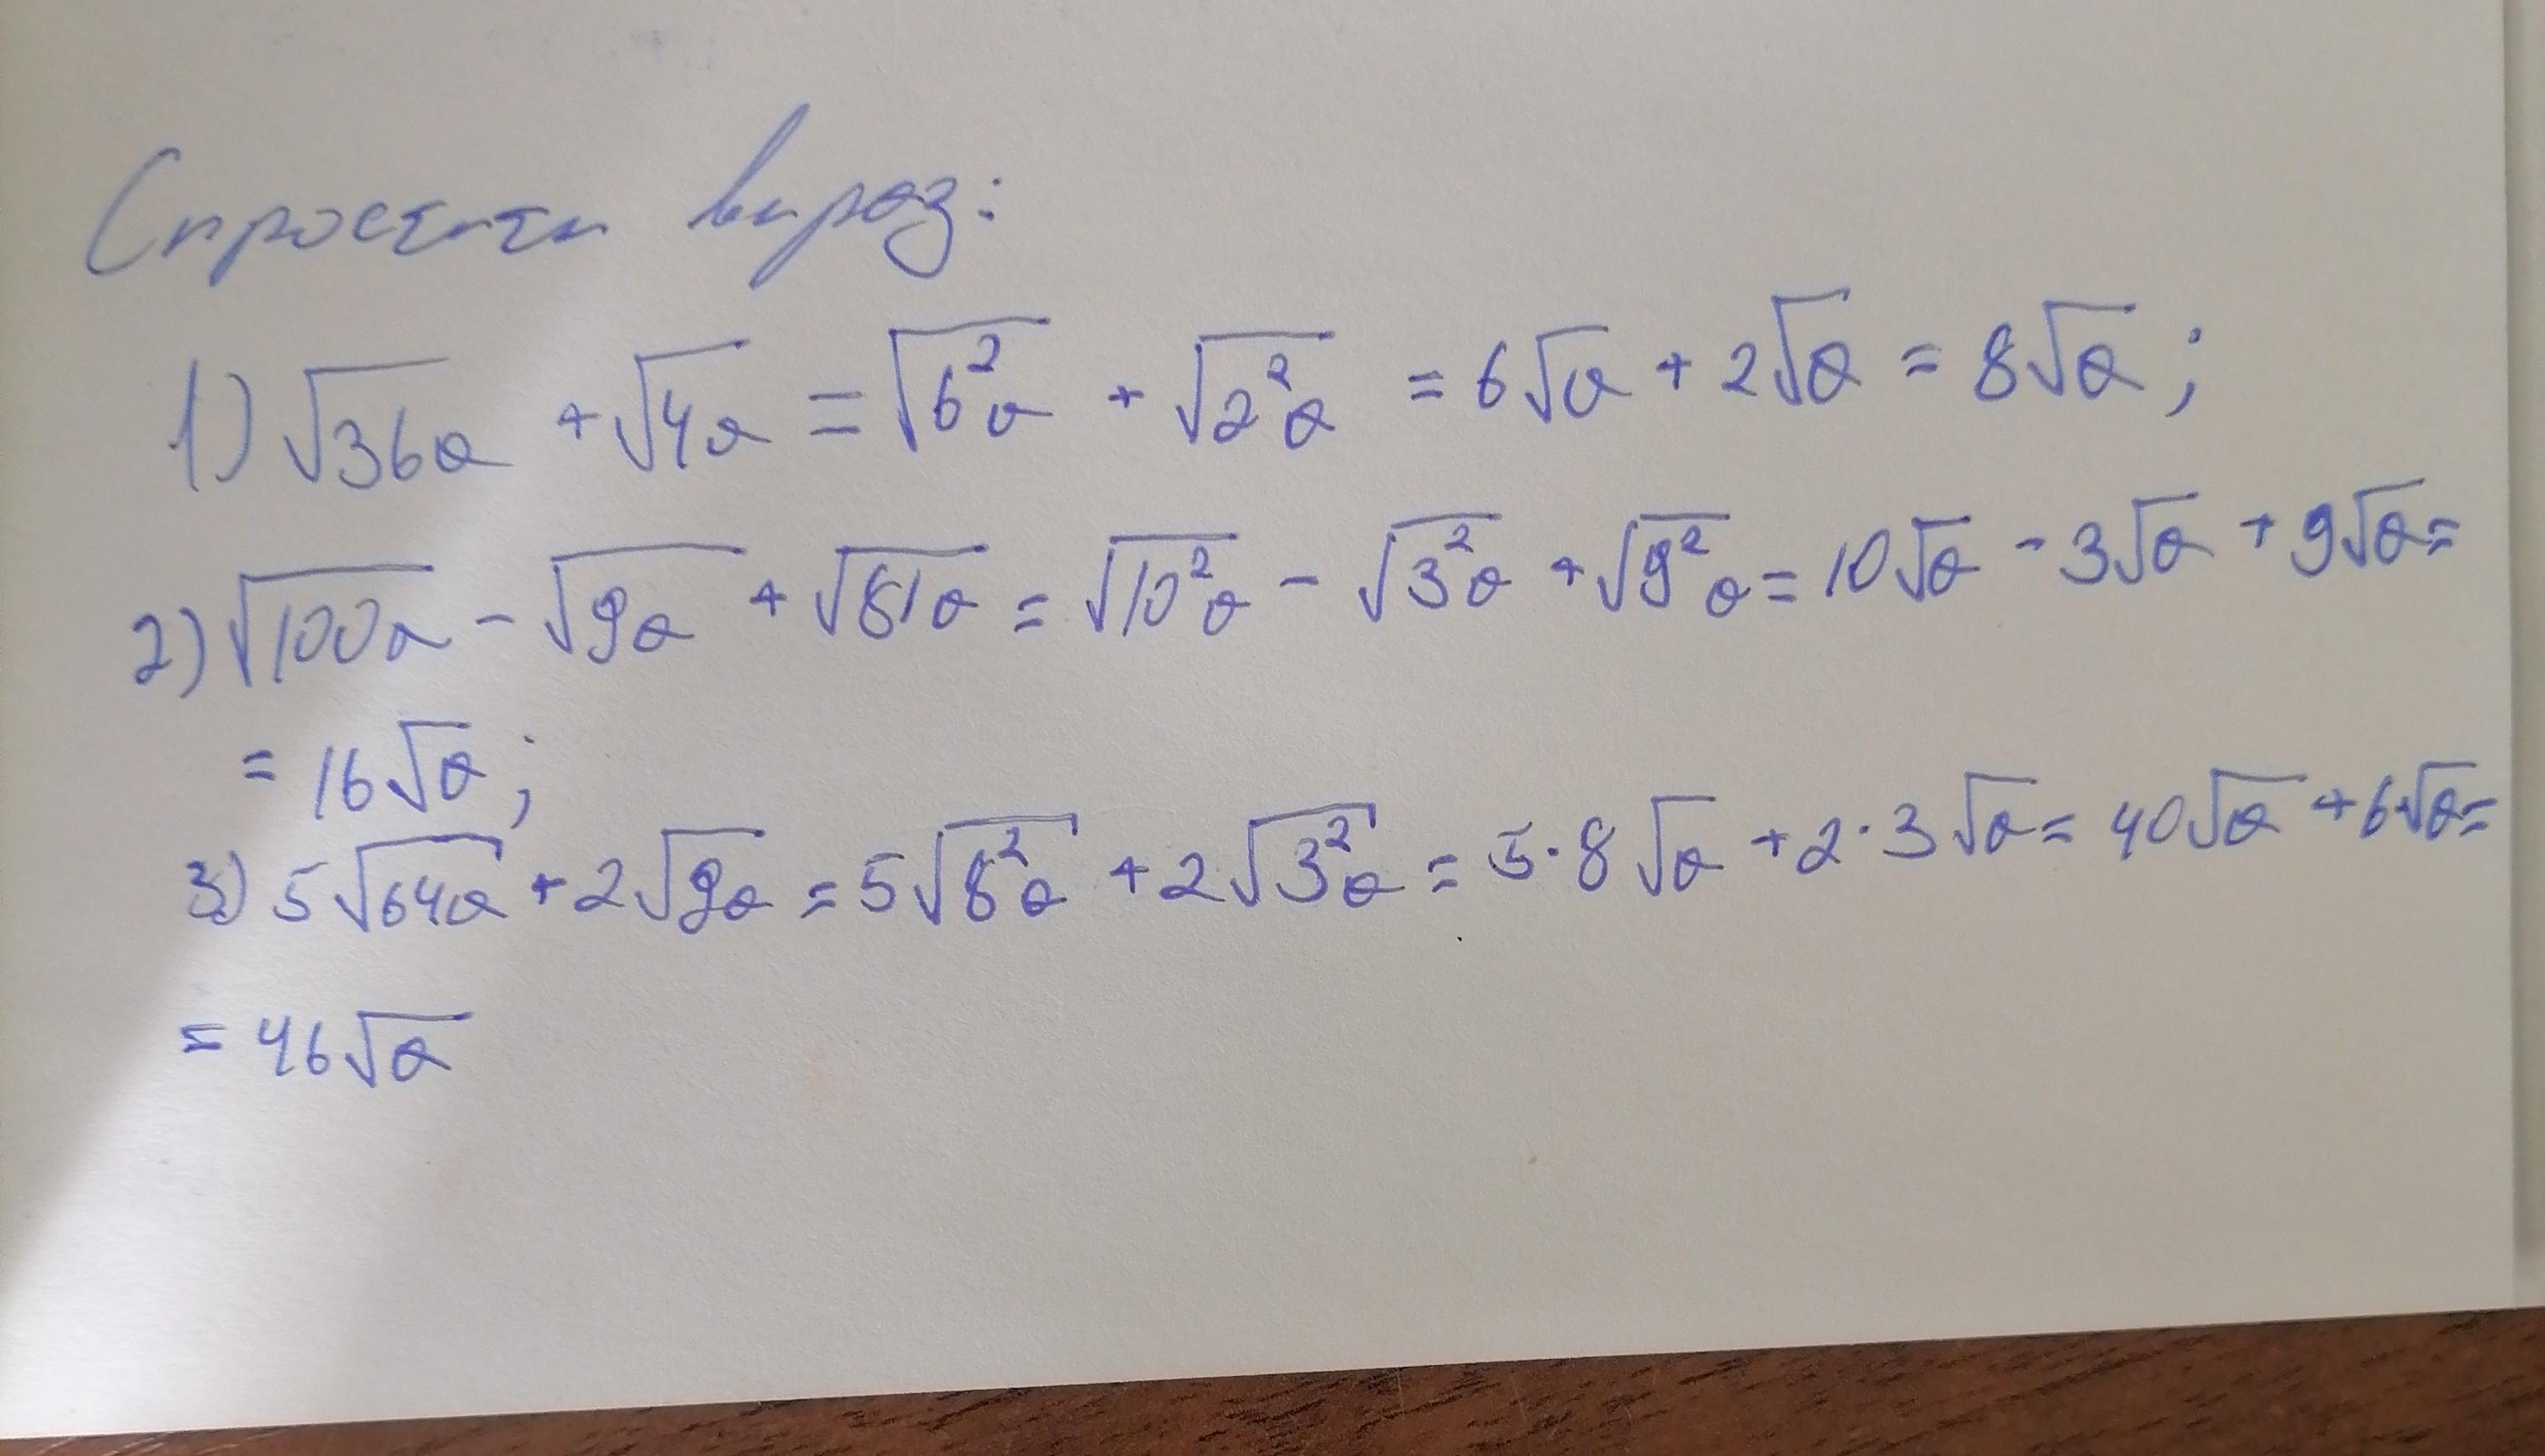 Спростити вираз:
1) √36a + √4a = √6²a + √2²a = 6√a + 2√a = 8√a ;
2) √100a - √9a + √81a = √10²a - √3²a + √9²a = 10√a - 3√a + 9√a =
= 16√a ;
3) 5√64a + 2√9a = 5√8²a + 2√3²a = 5·8√a + 2·3√a = 40√a + 6√a =
= 46√a